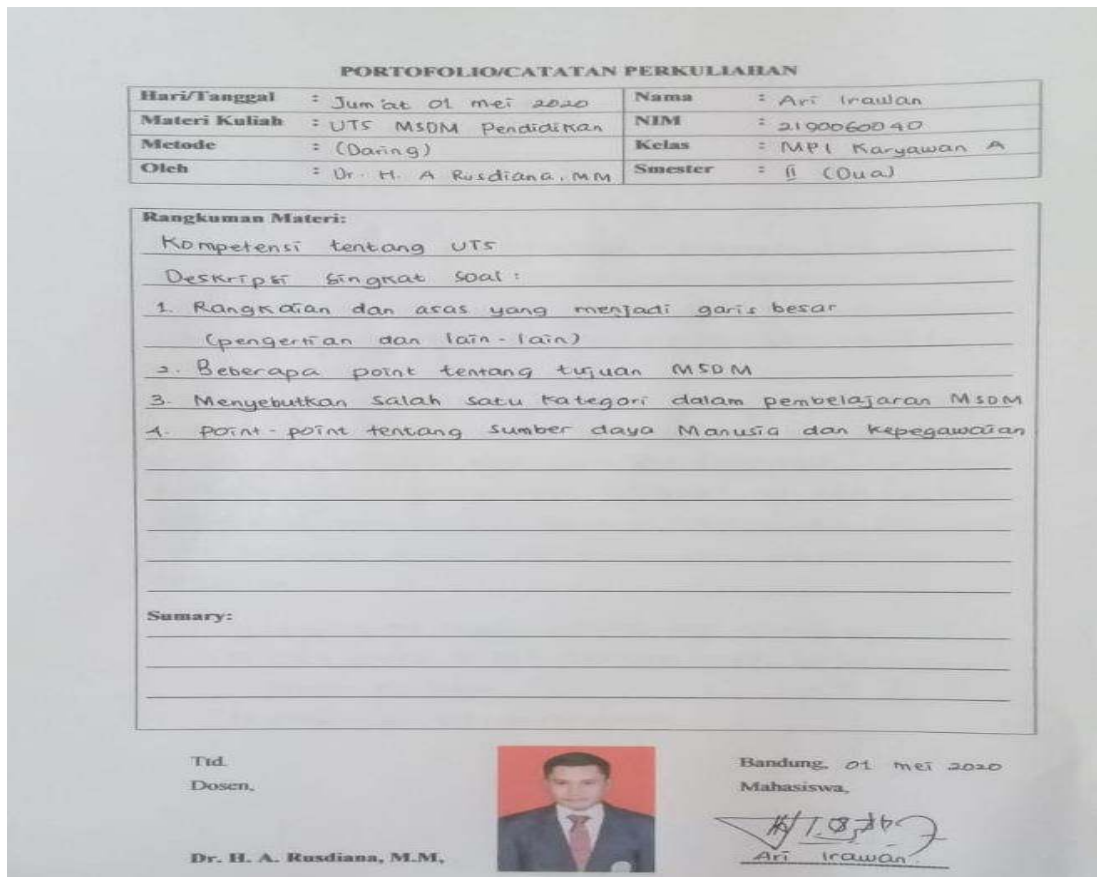 PORTOFOLIO/CATATAN PERKULIAHAN
Hari/Tanggal : Jum'at 01 mei 2020 Nama : Ari Irawan
Materi Kuliah : UTS MSDM Pendidikan NIM : 2190060040
Metode : (Daring) Kelas : MPI Karyawan A
Oleh : Dr. H. A Rusdiana, MM Smester : II (Dua)
Rangkuman Materi:
Kompetensi tentang UTS
Deskripsi singkat soal :
1. Rangkaian dan asas yang menjadi garis besar
(pengertian dan lain-lain)
2. Beberapa point tentang tujuan MSDM
3. Menyebutkan salah satu kategori dalam pembelajaran MSDM
4. Point-point tentang Sumber daya Manusia dan Kepegawaian
Sumary:
Ttd.
Dosen,
Dr. H. A. Rusdiana, M.M,
Bandung, 01 mei 2020
Mahasiswa,
Ari Irawan